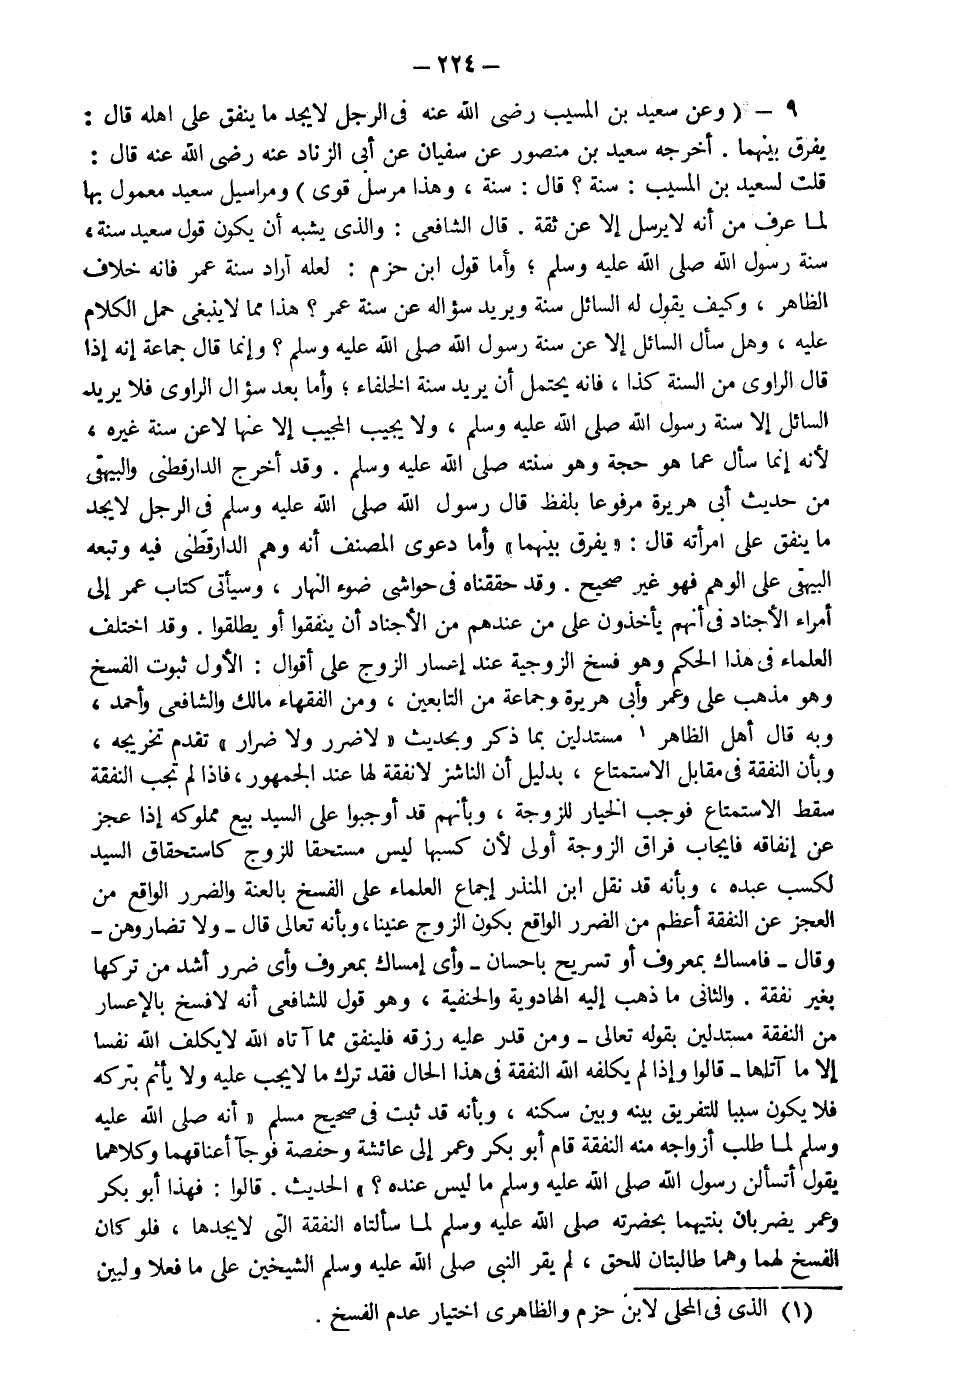 — ٢٢٤ —
٩ — ( وعن سعيد بن المسيب رضى الله عنه فى الرجل لايجد ما ينفق على اهله قال :
يفرق بينهما . أخرجه سعيد بن منصور عن سفيان عن أبى الزناد عنه رضى الله عنه قال :
قلت لسعيد بن المسيب : سنة ؟ قال : سنة ، وهذا مرسل قوى ) ومراسيل سعيد معمول بها
لما عرف من أنه لايرسل إلا عن ثقة . قال الشافعى : والذى يشبه أن يكون قول سعيد سنة ،
سنة رسول الله صلى الله عليه وسلم ؛ وأما قول ابن حزم : لعله آراد سنة عمر فانه خلاف
الظاهر ، وكيف يقول له السائل سنة ويريد سؤاله عن سنة عمر ؟ هذا مما لاينبغى حمل الكلام
عليه ، وهل سأل السائل إلا عن سنة رسول الله صلى الله عليه وسلم ؟ وإنما قال جماعة إنه إذا
قال الراوى من السنة كذا ، فانه يحتمل أن يريد سنة الخلفاء ؛ وأما بعد سؤال الراوى فلا يريد
السائل إلا سنة رسول الله صلى الله عليه وسلم ، ولا يجيب المجيب إلا عنها لاعن سنة غيره ،
لأنه إنما سأل عما هو حجة وهو سنته صلى الله عليه وسلم . وقد أخرج الدارقطنى والبيهقى
من حديث أبى هريرة مرفوعا بلفظ قال رسول الله صلى الله عليه وسلم فى الرجل لايجد
ما ينفق على امرأته قال : « يفرق بينهما » وأما دعوى المصنف أنه وهم الدارقطنى فيه وتبعه
البيهقى على الوهم فهو غير صحيح . وقد حققناه فى حواشى ضوء النهار ، وسيأتى كتاب عمر إلى
أمراء الأجناد فى أنهم يأخذون على من عندهم من الأجناد أن ينفقوا أو يطلقوا . وقد اختلف
العلماء فى هذا الحكم وهو فسخ الزوجية عند إعسار الزوج على أقوال : الأول ثبوت الفسخ
وهو مذهب على وعمر وأبى هريرة وجماعة من التابعين ، ومن الفقهاء مالك والشافعى وأحمد ،
وبه قال أهل الظاهر ١ مستدلين بما ذكر وبحديث « لاضرر ولا ضرار » تقدم تخريجه ،
وبأن النفقة فى مقابل الاستمتاع ، بدليل أن الناشز لانفقة لها عند الجمهور ، فاذا لم تجب النفقة
سقط الاستمتاع فوجب الخيار للزوجة ، وبأنهم قد أوجبوا على السيد بيع مملوكه إذا عجز
عن إنفاقه فايجاب فراق الزوجة أولى لأن كسبها ليس مستحقا للزوج كاستحقاق السيد
لكسب عبده ، وبأنه قد نقل ابن المنذر إجماع العلماء على الفسخ بالعنة والضرر الواقع من
العجز عن النفقة أعظم من الضرر الواقع بكون الزوج عنينا ، وبأنه تعالى قال ـ ولا تضاروهن ـ
وقال ـ فامساك بمعروف أو تسريح باحسان ـ وأى إمساك بمعروف وأى ضرر أشد من تركها
بغير نفقة . والثانى ما ذهب إليه الهادوية والحنفية ، وهو قول للشافعى أنه لافسخ بالإعسار
من النفقة مستدلين بقوله تعالى ـ ومن قدر عليه رزقه فلينفق مما آتاه الله لايكلف الله نفسا
إلا ما آتاها ـ قالوا وإذا لم يكلفه الله النفقة فى هذا الحال فقد ترك ما لايجب عليه ولا يأثم بتركه
فلا يكون سببا للتفريق بينه وبين سكنه ، وبأنه قد ثبت فى صحيح مسلم « أنه صلى الله عليه
وسلم لما طلب أزواجه منه النفقة قام أبو بكر وعمر إلى عائشة وحفصة فوجآ أعناقهما وكلاهما
يقول أتسألن رسول الله صلى الله عليه وسلم ما ليس عنده ؟ » الحديث . قالوا : فهذا أبو بكر
وعمر يضربان بنتيهما بحضرته صلى الله عليه وسلم لما سألتاه النفقة التى لايجدها ، فلو كان
الفسخ لهما وهما طالبتان للحق ، لم يقر النبى صلى الله عليه وسلم الشيخين على ما فعلا ولبين
(١) الذى فى المحلى لابن حزم والظاهرى اختيار عدم الفسخ .